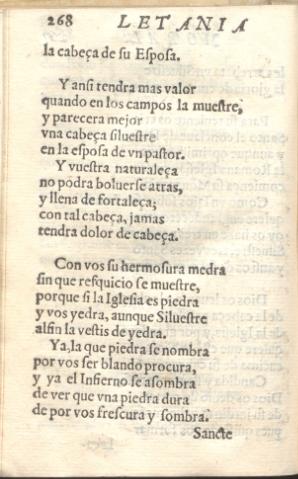 268 LETANIA
la cabeça de su Esposa.
Y ansi tendra mas valor
quando en los campos la muestre,
y parecera mejor
vna cabeça siluestre
en la esposa de vn pastor.
Y vuestra naturaleça
no podra boluerse atras,
y llena de fortaleça;
con tal cabeça, jamas
tendra dolor de cabeça.
Con vos su hermosura medra
sin que resquicio se muestre,
porque si la Iglesia es piedra
y vos yedra, aunque Siluestre
alfin la vestis de yedra.
Ya, la que piedra se nombra
por vos ser blando procura,
y ya el Infierno se asombra
de ver que vna piedra dura
de por vos frescura y sombra.
Sancte